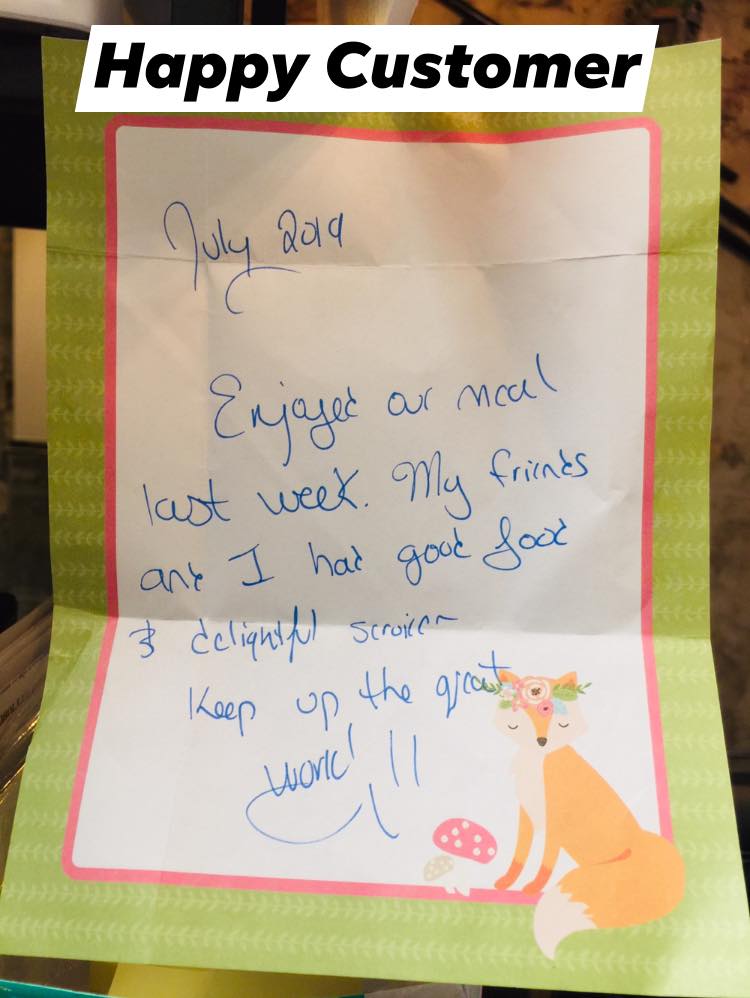 Happy Customer
July 2019
Enjoyed our meal
last week. My friends
and I had good food
& delightful service
Keep up the great
work! !!